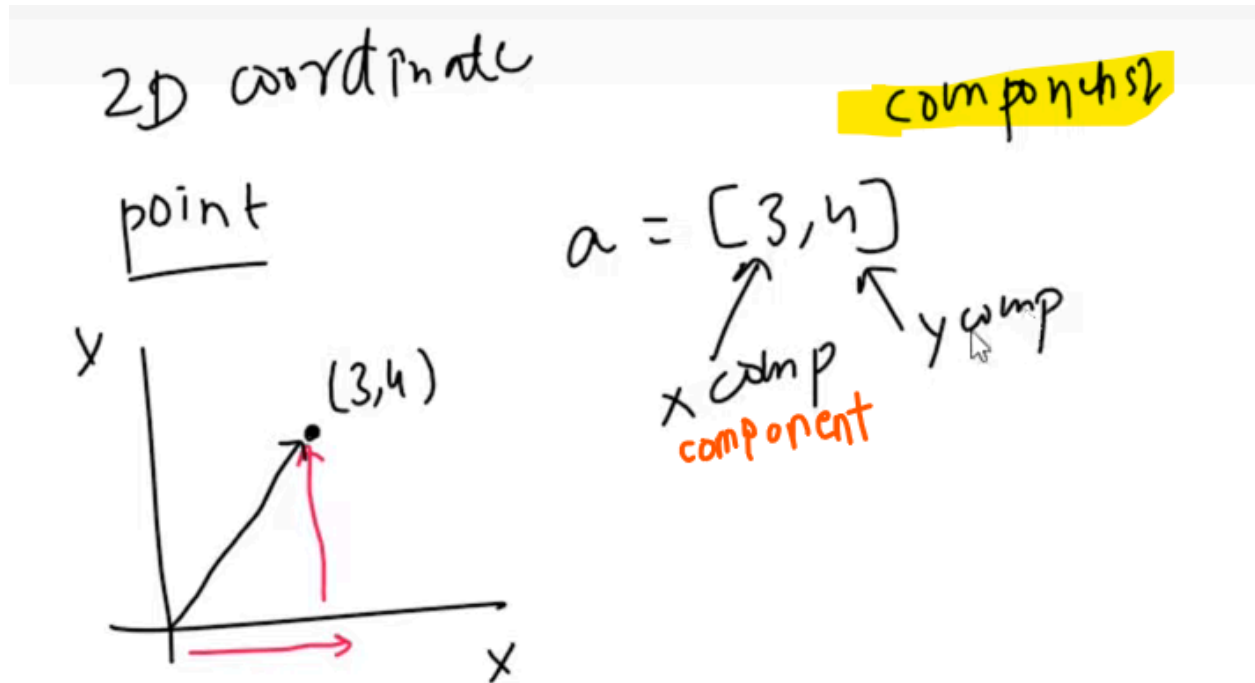 2D coordinate
components
point
a = [3,4]
y comp
x comp
component
y
(3,4)
x